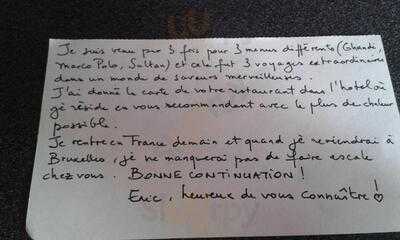 Je suis venu par 3 fois pour 3 menus différents (Ghandi,
Marco Polo, Sultan) et cela fut 3 voyages extraordinaires
dans un monde de saveurs merveilleuses.
J'ai donné la carte de votre restaurant dans l'hotel où
je réside en vous recommandant avec le plus de chaleur
possible.
Je rentre en France demain et quand je reviendrai à
Bruxelles, je ne manquerai pas de faire escale
chez vous. BONNE CONTINUATION!
Eric, heureux de vous connaître!